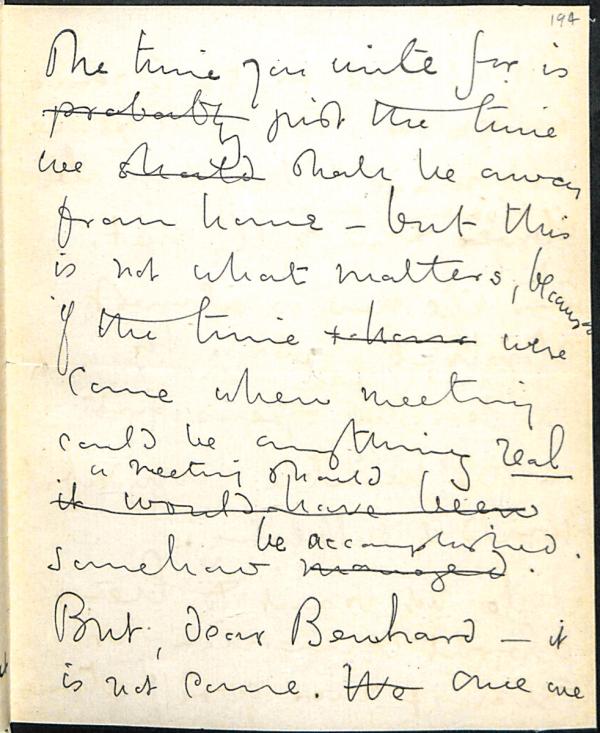 194
The time you write for is
probably just the time
we should shall be away
from home – but this
is not what matters, because
if the time were
come when meeting
could be anything real
a meeting should
it would have been
be accomplished.
somehow managed.
But, dear Bernhard – it
is not come. We Once we